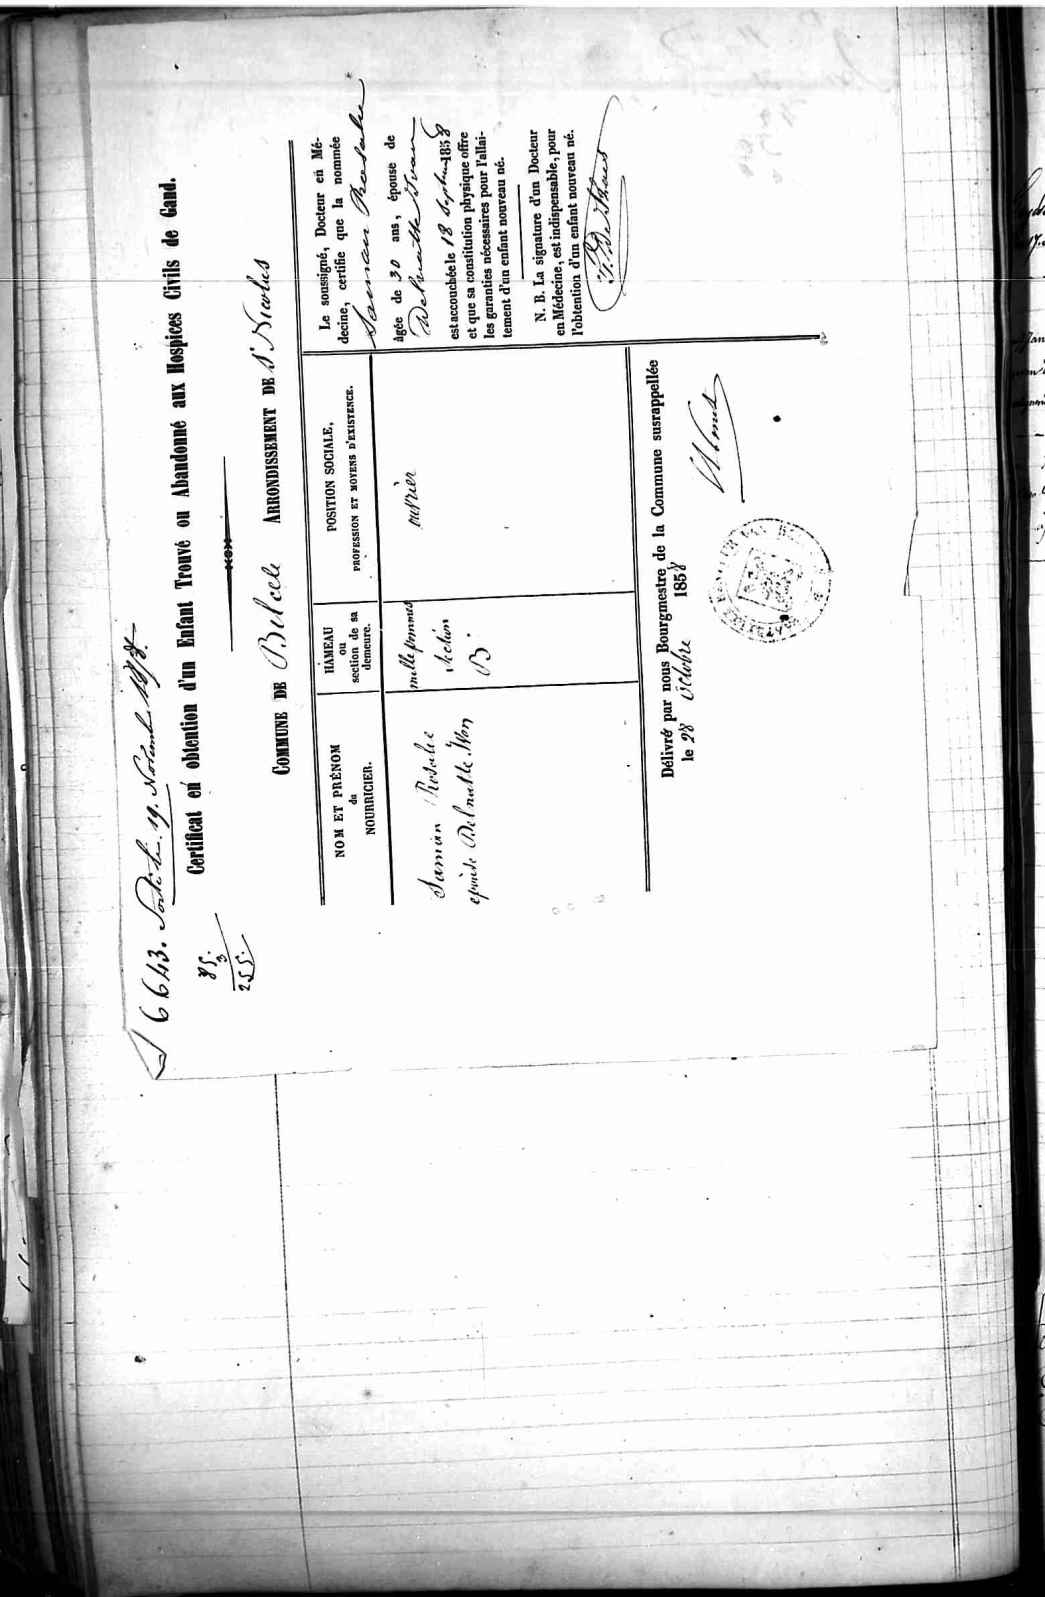 6643. Sorti le 19. Novembre 1858.
85.
3
255.
Certificat en obtention d'un Enfant Trouvé ou Abandonné aux Hospices Civils de Gand.
COMMUNE DE Belcele ARRONDISSEMENT DE St Nicolas
NOM ET PRÉNOM
du
NOURRICIER.
HAMEAU
ou
section de sa
demeure.
POSITION SOCIALE,
PROFESSION ET MOYENS D'EXISTENCE.
Saman Rosalie
épouse Delnatte Ivon
mille pommes
section
B.
ouvrier
Le soussigné, Docteur en Mé-
decine, certifie que la nommée
Saman Rosalie
âgée de 30 ans, épouse de
Delnatte Ivon
est accouchée le 18 Septbre 1858
et que sa constitution physique offre
les garanties nécessaires pour l'allai-
tement d'un enfant nouveau né.
N. B. La signature d'un Docteur
en Médecine, est indispensable, pour
l'obtention d'un enfant nouveau né.
Délivré par nous Bourgmestre de la Commune susrappellée
le 28 Octobre 1858